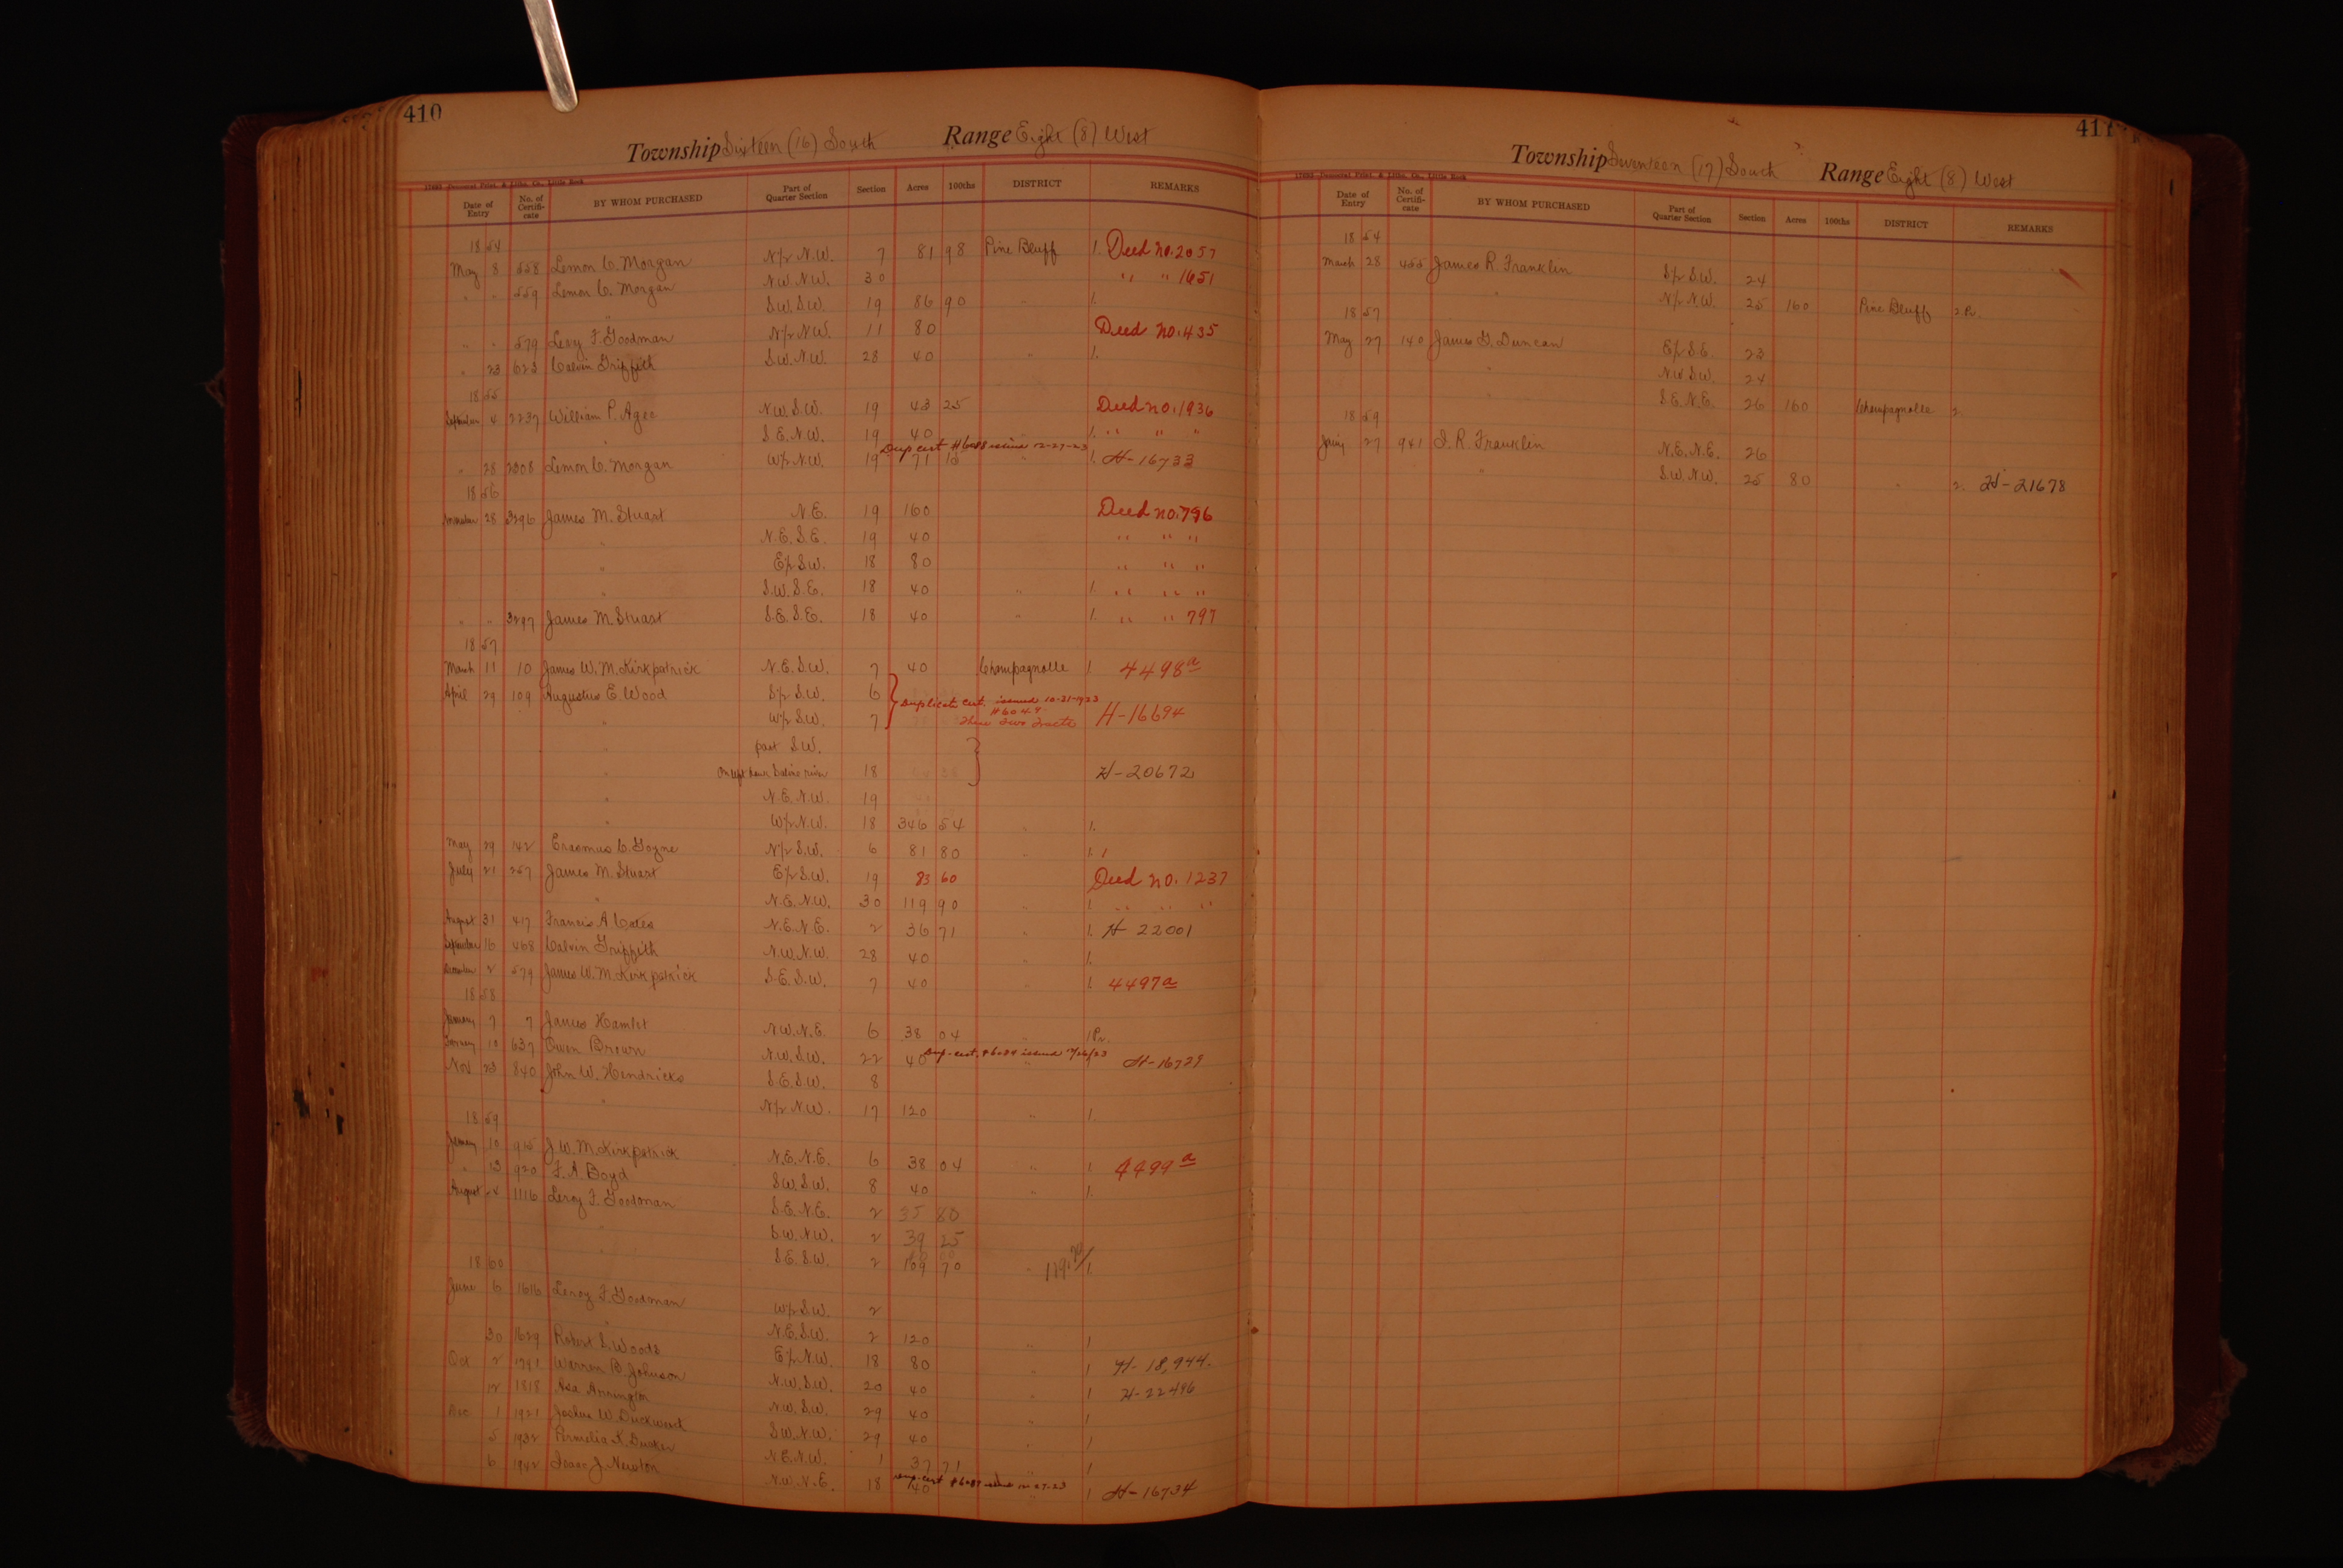 410
Township Sixteen (16) South Range Eight (8) West
17693 Democrat Print. & Litho. Co., Little Rock
Date of Entry No. of Certifi-cate BY WHOM PURCHASED Part of Quarter Section Section Acres 100ths DISTRICT REMARKS
1854
May 8 558 Lemon C. Morgan N/2 N.W. 7 81 98 Pine Bluff 1. Deed no. 2057
" " 559 Lemon C. Morgan N.W. N.W. 30 " " 1651
" S.W. S.W. 19 86 90 " 1.
" " 579 Leroy F. Goodman N/2 N.W. 11 80 Deed no. 435
" 23 623 Calvin Griffith S.W. N.W. 28 40 " 1.
1855
September 4 2237 William P. Agee N.W. S.W. 19 43 25 Deed no. 1936
" S.E. N.W. 19 40 1. " " "
Dup cert #6088 issued 12-27-23
" 28 2308 Lemon C. Morgan W/2 N.W. 19 71 12 " 1. H-16733
1856
November 28 3296 James M. Stuart N.E. 19 160 Deed no. 796
" N.E. S.E. 19 40 " " "
" E/2 S.W. 18 80 " " "
" S.W. S.E. 18 40 " 1. " " "
" " 3297 James M. Stuart S.E. S.E. 18 40 " 1. " " 797
1857
March 11 10 James W. M. Kirkpatrick N.E. S.W. 7 40 Champagnolle 1 4498a
April 29 109 Augustus E. Wood S/2 S.W. 6
Duplicate Cert. issued 10-31-1923
#6047
" W/2 S.W. 7 These Two Tracts H-16694
part S.W.
" On left bank Saline river 18 H-20672
" N.E. N.W. 19
" W/2 N.W. 18 346 54 " 1.
May 29 142 Erasmus C. Goyne N/2 S.W. 6 81 80 " 1. 1
July 21 257 James M. Stuart E/2 S.W. 19 83 60 Deed no. 1237
" N.E. N.W. 30 119 90 " 1 " " "
August 31 417 Francis A Cates N.E. N.E. 2 36 71 " 1. H 22001
September 16 468 Calvin Griffith N.W. N.W. 28 40 " 1.
December 2 579 James W. M. Kirkpatrick S.E. S.W. 7 40 " 1. 4497a
1858
January 7 7 James Hamlet N.W. N.E. 6 38 04 1
10 637 Owen Brown N.W. S.W. 22 40 " H-16729
Nov 23 840 John W. Hendricks S.E. S.W. 8
" N/2 N.W. 17 120 " 1.
1859
January 10 915 J. W. M. Kirkpatrick N.E. N.E. 6 38 04 " 1 4499a
" 13 920 F. A. Boyd S.W. S.W. 8 40 " 1.
August 24 1116 Leroy F. Goodman S.E. N.E. 2 35 80
" S.W. N.W. 2 39 25
" S.E. S.W. 2 169 70 " 1.
1860
June 6 1616 Leroy F. Goodman W/2 S.W. 2
" N.E. S.W. 2 120 " 1
30 1629 Robert S. Woods E/2 N.W. 18 80 " 1 H-18,944.
Oct 2 1791 Warren B. Johnson N.W. S.W. 20 40 " 1 H-22496
12 1818 Asa Arrington N.W. S.W. 29 40 " 1
Dec 1 1921 Joshua W. Duckworth S.W. N.W. 29 40 " 1
5 1932 Permelia K. Tucker N.E. N.W. 1 37 71 " 1
6 1942 Isaac J. Newton N.W. N.E. 18 40 " 1 H-16734
411
Township Seventeen (17) South Range Eight (8) West
17693 Democrat Print. & Litho. Co., Little Rock
Date of Entry No. of Certifi-cate BY WHOM PURCHASED Part of Quarter Section Section Acres 100ths DISTRICT REMARKS
1854
March 28 455 James R. Franklin S/2 S.W. 24
" N/2 N.W. 25 160 Pine Bluff 2.
1857
May 27 140 James G. Duncan E/2 S.E. 23
" N.W. S.W. 24
" S.E. N.E. 26 160 Champagnolle 2
1859
27 941 J. R. Franklin N.E. N.E. 26
" S.W. N.W. 25 80 " 2. H-21678